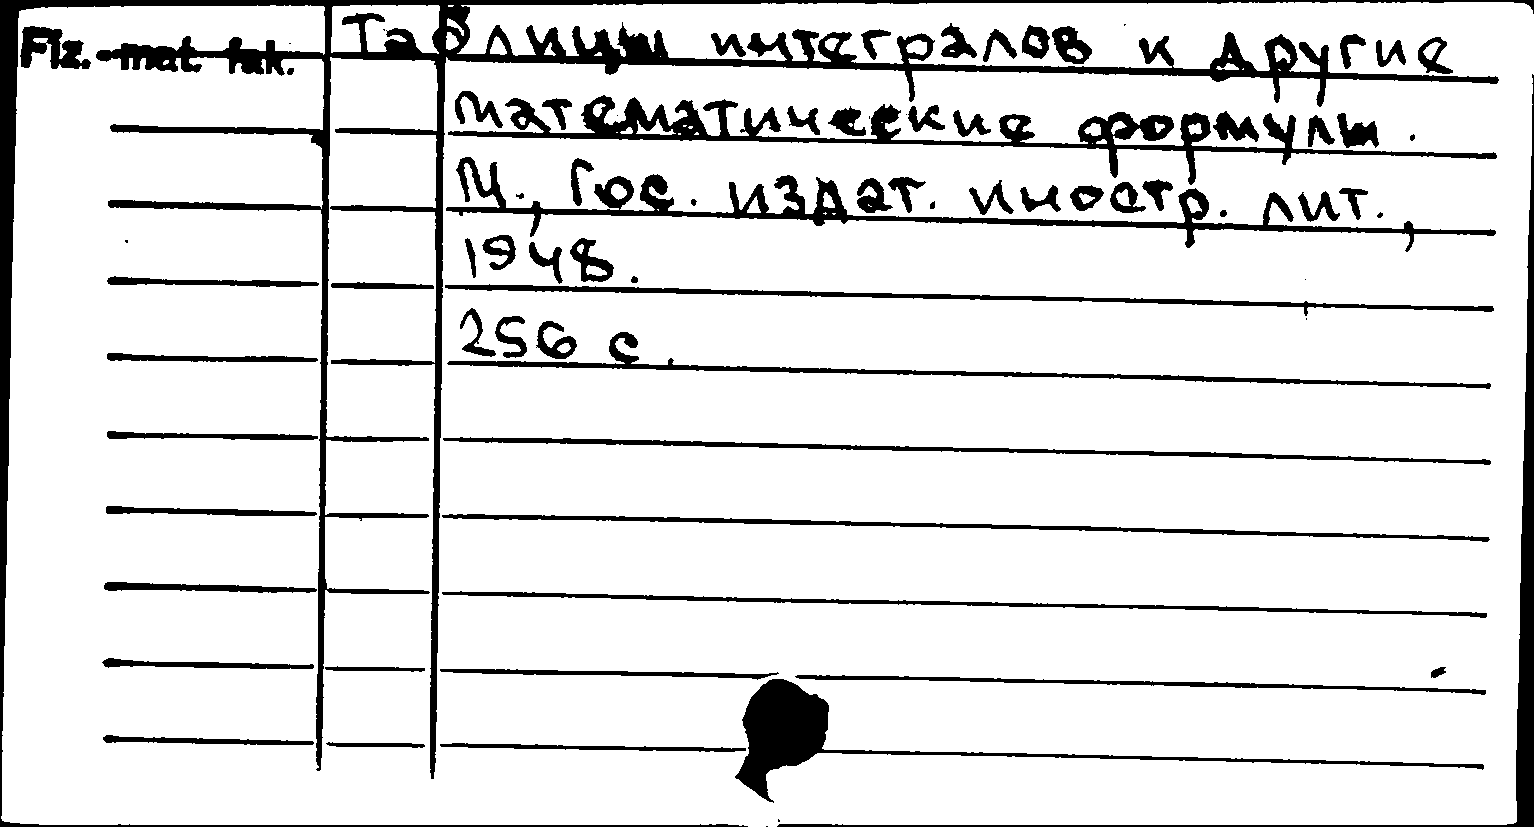 Fiz.-mat. fak. Таблицы интегралов и другие
математические формулы.
М., Гос. издат. иностр. лит.,
1948.
256 с.